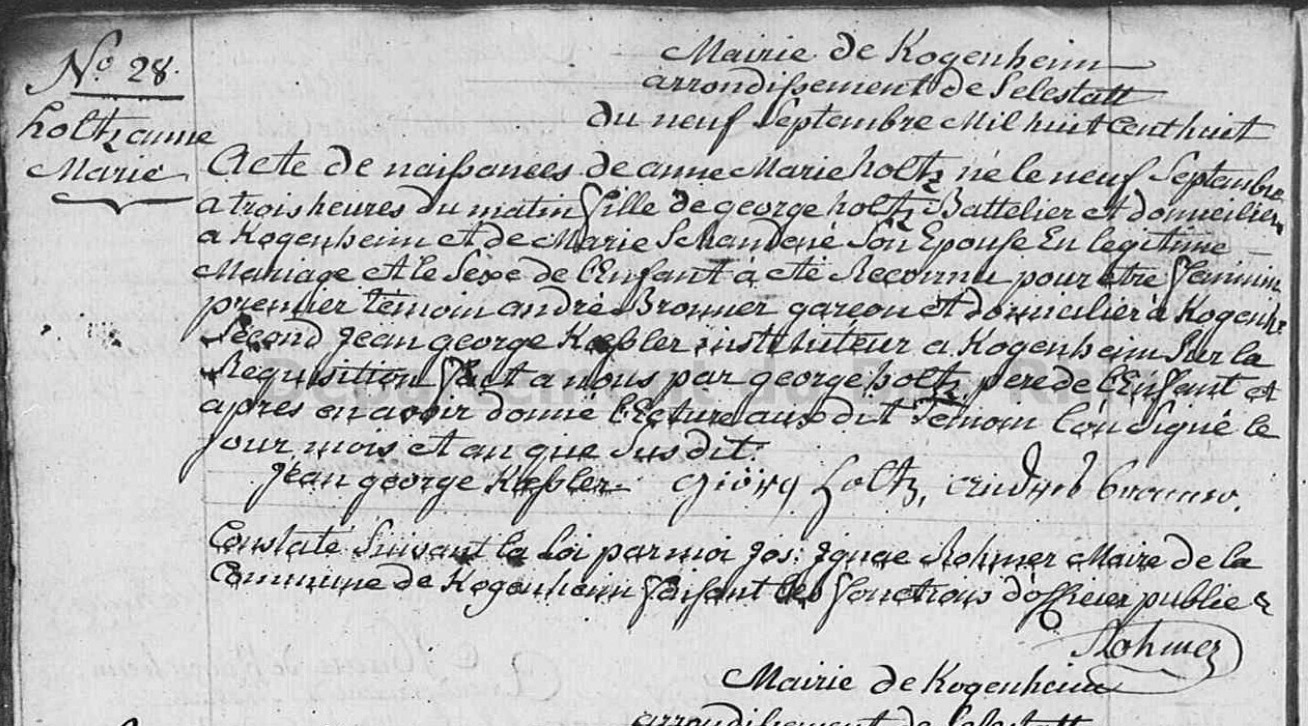 No. 28.
holtz anne
Marie
Mairie de Kogenheim
arrondissement de Selestatt
du neuf Septembre Mil huit Cent huit
Acte de naissances de anne Marie holtz né le neuf Septembre
a trois heures du matin fille de george holtz Battelier et domicilier
a Kogenheim et de Marie Schandené Son Epouse En legitime
Mariage et le Sexe de l'Enfant à eté Reconnu pour être feminin
premier témoin andré Bronner garçon et domicilié à Kogenh:
Second Jean george Kessler instituteur a Kogenheim Sur la
Requisition fact a nous par george holtz pere de l'Enfant et
après en avoir donné lecture aux dit Temoin L'on Signé le
Jour mois et an que Susdit.
Jean george Kessler Giörg Holtz, andres bronner.
Constaté Suivant la Loi par moi Jos: Ignace Rohmer Maire de la
Commune de Kogenheim faisant les fonctions d'officier public
Rohmer
Mairie de Kogenheim
arrondissement de Selestatt
Département du Bas-Rhin